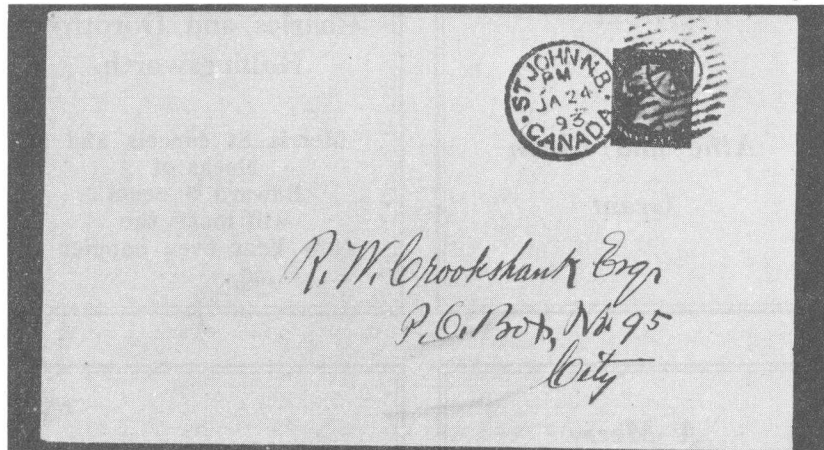 ST. JOHN. N.B.
PM
JA 24
93
CANADA
R. W. Crookshank Esqr
P.O. Box, No 95
City